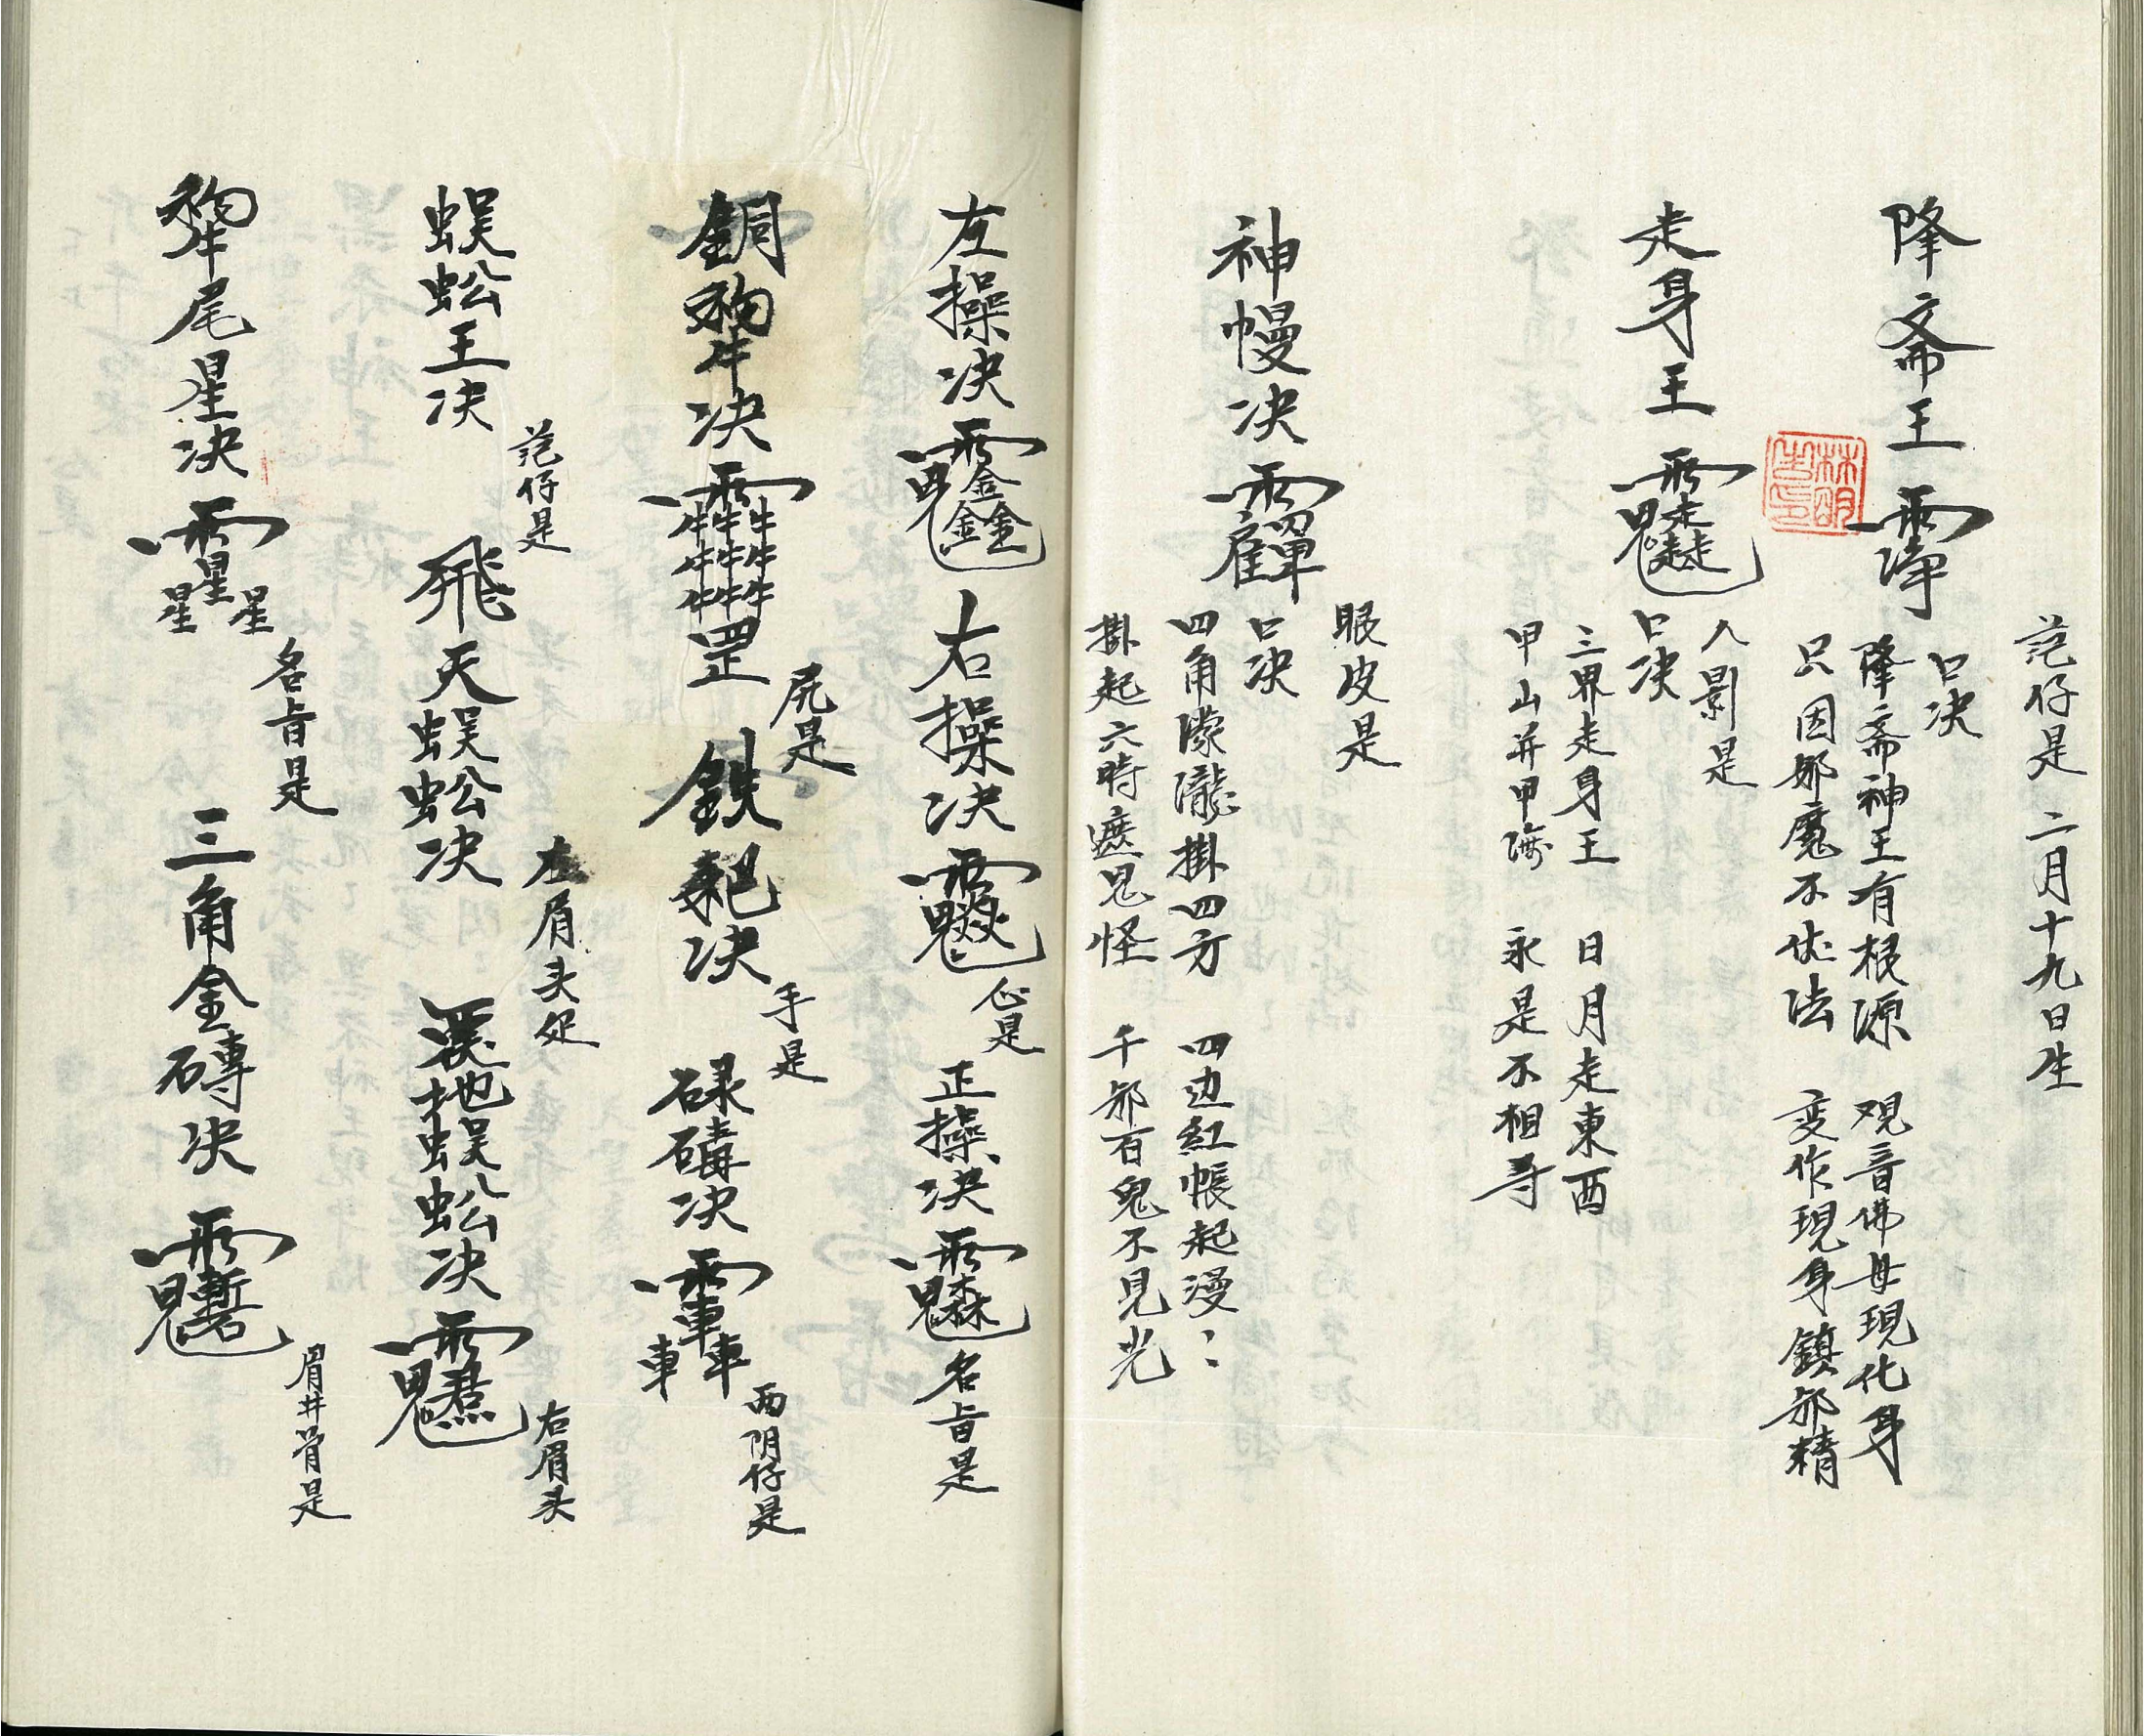 范仔是 二月十九日生
降斋王
口决
降斋神王有根源 观音佛母現化身
只因邪魔不伏法 变作現身鎮邪精
走身王
人影是
口决
三界走身王 日月走東西
甲山并甲海 永是不相寻
神幔决
眼皮是
口决
四角濛瀧掛四方 四边紅帳起漫
掛起六時遮鬼怪 千邪百鬼不見光
左操决 右操决
心是
正操决
名旨是
銅决
罡
尻是
鉄耙决
手是
碌碡决
西阴仔是
蜈蚣王决
范仔是
飛天蜈蚣决
左眉头是
地蜈蚣决
右眉头
尾星决
名旨是
三角金磚决
眉井骨是